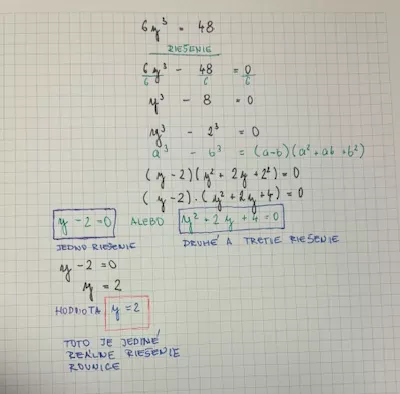 6y³ = 48
RIEŠENIE
6y³/6 - 48/6 = 0/6
y³ - 8 = 0
y³ - 2³ = 0
a³ - b³ = (a-b)(a²+ab+b²)
(y-2)(y²+2y+2²)=0
(y-2).(y²+2y+4)=0
y-2=0 ALEBO y²+2y+4=0
JEDNO RIEŠENIE DRUHÉ A TRETIE RIEŠENIE
y-2=0
y=2
HODNOTA y=2
TOTO JE JEDINÉ
REÁLNE RIEŠENIE
ROVNICE